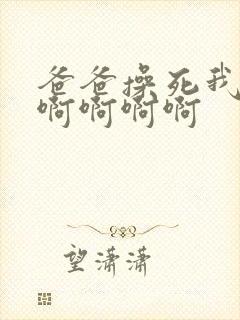 爸爸操死我
啊啊啊啊
望潇潇